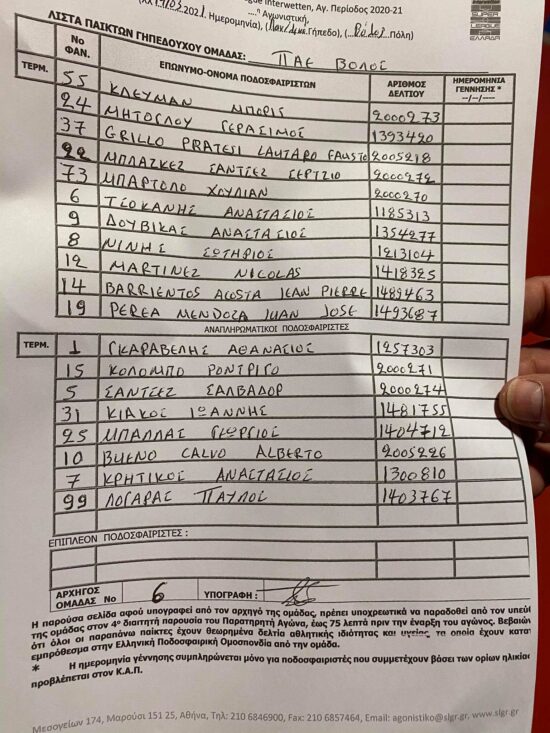 Interwetten, Αγ. Περίοδος 2020-21
Αγωνιστική,
2021 Ημερομηνία), (Πανθεσ. Γήπεδο), (Βόλος Πόλη)
SUPER LEAGUE ΕΛΛΑΔΑ
ΛΙΣΤΑ ΠΑΙΚΤΩΝ ΓΗΠΕΔΟΥΧΟΥ ΟΜΑΔΑΣ: ΠΑΕ ΒΟΛΟΣ
ΤΕΡΜ. Νο ΦΑΝ. ΕΠΩΝΥΜΟ-ΟΝΟΜΑ ΠΟΔΟΣΦΑΙΡΙΣΤΩΝ ΑΡΙΘΜΟΣ ΔΕΛΤΙΟΥ ΗΜΕΡΟΜΗΝΙΑ ΓΕΝΝΗΣΗΣ * --/--/----
55 ΚΛΕΥΜΑΝ ΜΠΟΡΙΣ 2000273
24 ΜΗΤΟΓΛΟΥ ΓΕΡΑΣΙΜΟΣ 1393420
37 GRILLO PRATESI LAUTARO FAUSTO 2005218
22 ΜΠΛΑΣΚΕΖ ΣΑΝΤΣΕΖ ΣΕΡΤΖΙΟ 2000272
73 ΜΠΑΡΤΟΛΟ ΧΟΥΛΙΑΝ 2000270
6 ΤΣΟΚΑΝΗΣ ΑΝΑΣΤΑΣΙΟΣ 1185313
9 ΔΟΥΒΙΚΑΣ ΑΝΑΣΤΑΣΙΟΣ 1354277
8 ΝΙΝΗΣ ΣΩΤΗΡΙΟΣ 1213104
12 MARTINEZ NICOLAS 1418325
14 BARRIENTOS ACOSTA JEAN PIERRE 1489463
19 PEREA MENDOZA JUAN JOSE 1493687
ΑΝΑΠΛΗΡΩΜΑΤΙΚΟΙ ΠΟΔΟΣΦΑΙΡΙΣΤΕΣ
ΤΕΡΜ. 1 ΓΚΑΡΑΒΕΛΗΣ ΑΘΑΝΑΣΙΟΣ 1257303
15 ΚΟΛΟΜΠΟ ΡΟΝΤΡΙΓΟ 2000271
5 ΣΑΝΤΣΕΖ ΣΑΛΒΑΔΟΡ 2000274
31 ΚΙΑΚΟΣ ΙΩΑΝΝΗΣ 1481755
25 ΜΠΑΛΛΑΣ ΓΕΩΡΓΙΟΣ 1404712
10 BUENO CALVO ALBERTO 2005226
7 ΚΡΗΤΙΚΟΣ ΑΝΑΣΤΑΣΙΟΣ 1300810
99 ΛΟΓΑΡΑΣ ΠΑΥΛΟΣ 1403767
ΕΠΙΠΛΕΟΝ ΠΟΔΟΣΦΑΙΡΙΣΤΕΣ :
ΑΡΧΗΓΟΣ ΟΜΑΔΑΣ Νο 6 ΥΠΟΓΡΑΦΗ :
Η παρούσα σελίδα αφού υπογραφεί από τον αρχηγό της ομάδας, πρέπει υποχρεωτικά να παραδοθεί από τον υπεύ
της ομάδας στον 4º διαιτητή παρουσία του Παρατηρητή Αγώνα, έως 75 λεπτά πριν την έναρξη του αγώνος. Βεβαιών
ότι όλοι οι παραπάνω παίκτες έχουν θεωρημένα δελτία αθλητικής ιδιότητας και υγείας, τα οποία έχουν κατατ
εμπρόθεσμα στην Ελληνική Ποδοσφαιρική Ομοσπονδία από την ομάδα.
* Η ημερομηνία γέννησης συμπληρώνεται μόνο για ποδοσφαιριστές που συμμετέχουν βάσει των ορίων ηλικίας
προβλέπεται στον Κ.Α.Π.
Μεσογείων 174, Μαρούσι 151 25, Αθήνα, Τηλ: 210 6846900, Fax: 210 6857464, Email: agonistiko@slgr.gr, www.slgr.gr